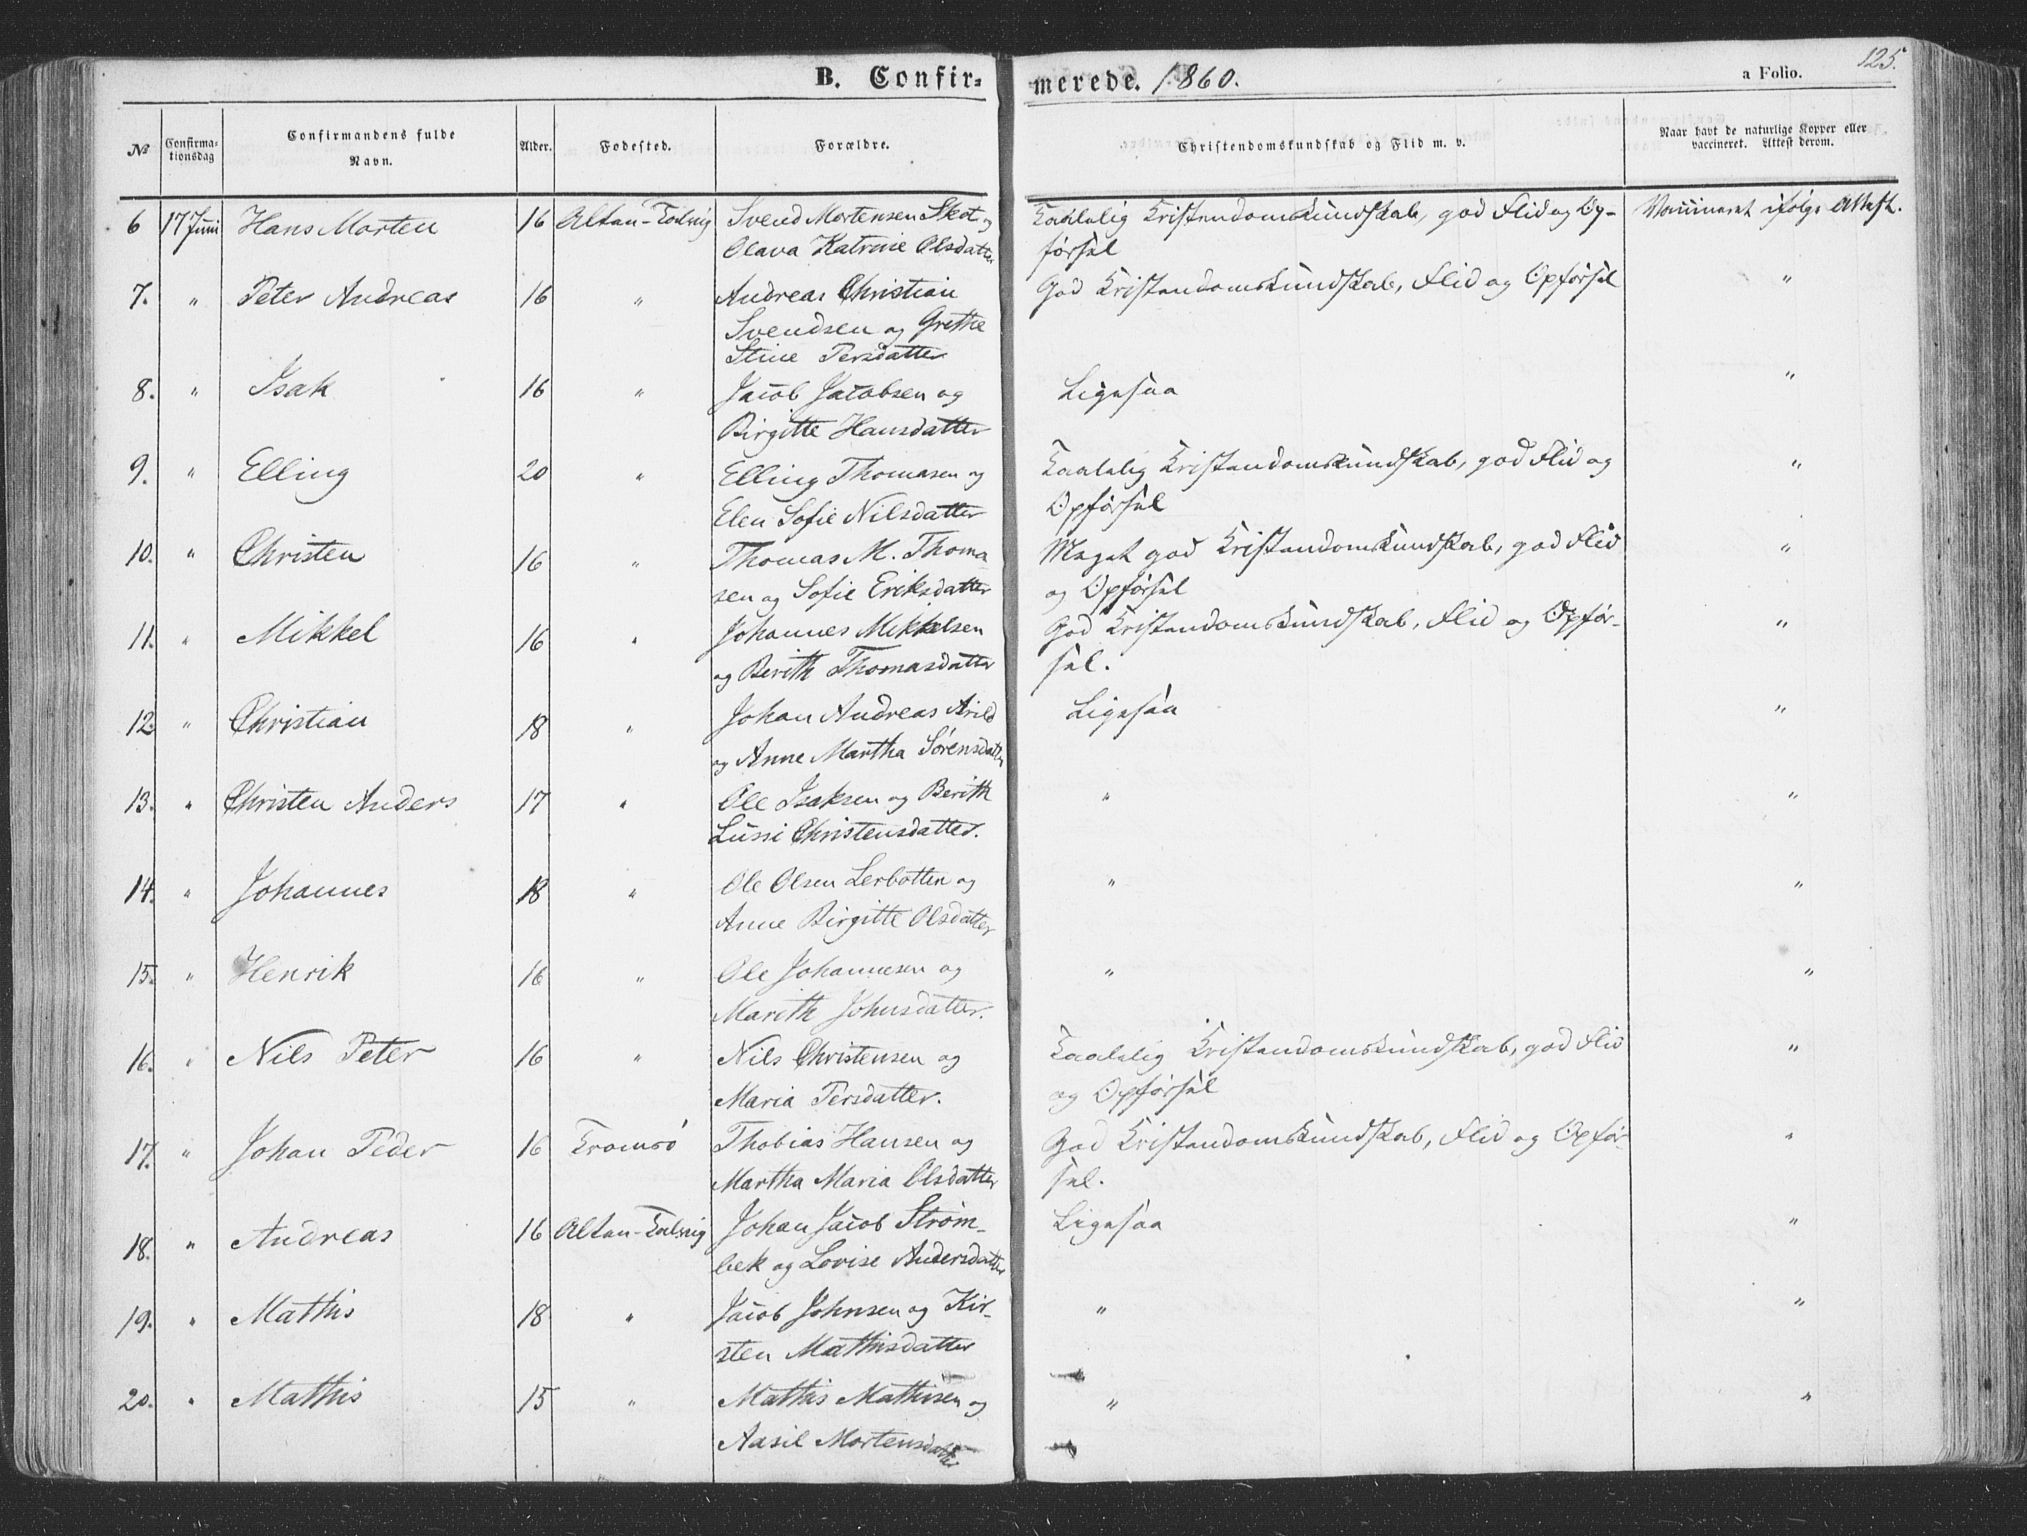 125.
B. Confir-merede. 1860. a Folio.
No Confirmationsdag Confirmandens fulde Navn. Alder. Fodested. Forældre. Christendomskundskab og Flid m. v. Naar havt de naturlige Kopper eller vaccineret. Attest derom.
6 17 Juni Hans Morten 16 Altan-Talvig Svend Mortensen Skot og Taalelig Kristendomskundskab, god Flid og Op- Vaccineret ifølge Attest.
Olava Katrine Olsdatter førsel
7. " Peter Andreas 16 " Andreas Christian God Kristendomskundskab, Flid og Opførsel "
Svendsen og Grethe
Stine Persdatter
8. " Isak 16 " Jacob Jacobsen og Ligesaa "
Birgitte Hansdatter
9. " Elling 20 " Elling Thomasen og Taalelig Kristendomskundskab, god Flid og "
Elen Sofie Nilsdatter Opførsel
10. " Christen 16 " Thomas M. Thoma- Meget god Kristendomskundskab, god Flid "
sen og Sofie Eriksdatter og Opførsel
11. " Mikkel 16 " Johannes Mikkelsen God Kristendomskundskab, Flid og Opfør- "
og Berith Thomasdatter sel.
12. " Christian 18 " Johan Andreas Arild Ligesaa "
og Anne Martha Sørensdatter
13. " Christen Anders 17 " Ole Isaksen og Berith " "
Lussi Christensdatter.
14. " Johannes 18 " Ole Olsen Lerbotten og " "
Anne Birgitte Olsdatter
15. " Henrik 16 " Ole Johannesen og " "
Marith Johnsdatter.
16. " Nils Peter 16 " Nils Christensen og Taalelig Kristendomskundskab, god Flid "
Maria Persdatter. og Opførsel
17. " Johan Peder 16 Tromsø Thobias Hansen og God Kristendomskundskab, Flid og Opfør- "
Martha Maria Olsdatter sel.
18. " Andreas 16 Altan-Talvig Johan Jacob Strøm- Ligesaa "
bek og Lovise Andersdatter
19. " Mathis 18 " Jacob Johnsen og Kir- " "
sten Mathisdatter
20. " Mathis 15 " Mathis Mathisen og " "
Aasil Mortensdatter